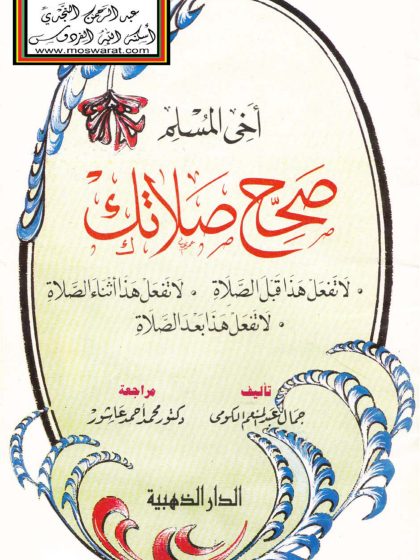 عبد الرحمن النجدي
أسكنه الله الفردوس
www.moswarat.com
أخى المسلم
صحح صلاتك
• لا تفعل هذا قبل الصلاة • لا تفعل هذا أثناء الصلاة
• لا تفعل هذا بعد الصلاة
تأليف
جمال عبد المنعم الكومى
مراجعة
دكتور محمد أحمد عاشور
الدار الذهبية